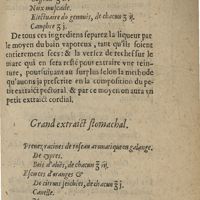 Noix muscade.
Electuaire de gemmis, de chacun ℥ ij.
Camphre ʒ j.
De tous ces ingrediens separez la liqueur par
le moyen du bain vaporeux, tant qu'ils soient
entierement secs: & la vertu de rechef sur le
marc qui en sera resté pour extraire vne teinture,
poursuiuant au surplus selon la methode
qu'auons ja prescrite en la composition du petit
extraict pectoral, & par ce moyen on aura vn
petit extraict cordial.
Grand extraict stomachal.
Prenez racines de roseau aromatique en galange.
De cypres.
Bois d'aloës, de chacun ℥ iij.
Escorces d'oranges &
De citrons seichées, de chacun ℥ j.
Canelle.